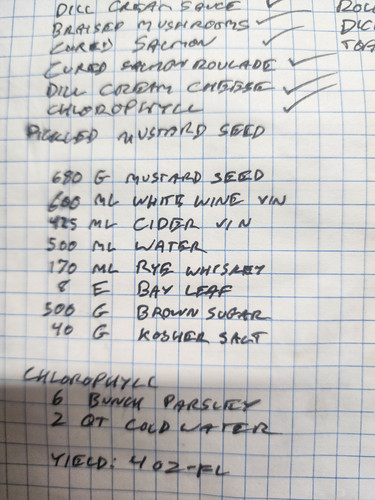 DILL CREAM SAUCE ✓
BRAISED MUSHROOMS ✓
CURED SALMON ✓
CURED SALMON ROULADE ✓
DILL CREAM CHEESE ✓
CHLOROPHYLL ✓
PICKLED MUSTARD SEED
680 G MUSTARD SEED
600 ML WHITE WINE VIN
425 ML CIDER VIN
500 ML WATER
170 ML RYE WHISKEY
8 E BAY LEAF
500 G BROWN SUGAR
40 G KOSHER SALT
CHLOROPHYLL
6 BUNCH PARSLEY
2 QT COLD WATER
YIELD: 4 OZ-FL